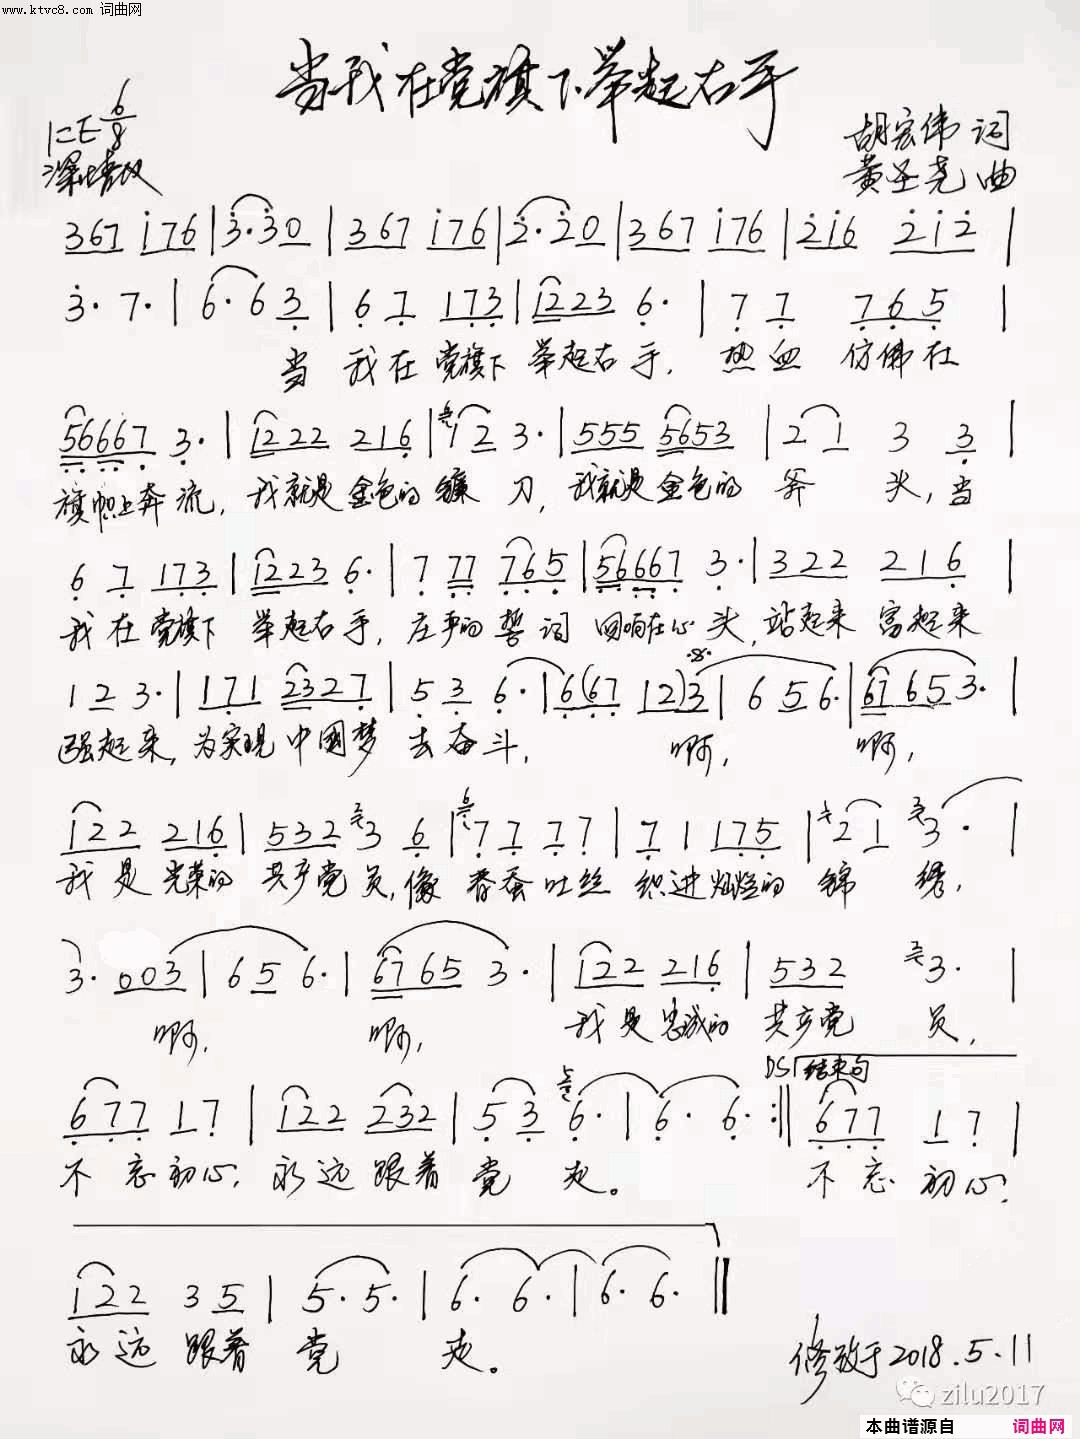 www.ktvc8.com 词曲网
当我在党旗下举起右手
1=E 6/8
深情
胡宏伟 词
黄圣尧 曲
367 176 | 3·30 | 367 176 | 2·20 | 367 176 | 216 212 |
3· 7· | 6·6 3 | 6 7 173 | 1223 6· | 7 7 765 |
当 我在党旗下 举起右手, 热血 仿佛在
56667 3· | 1222 216 | 12 3· | 555 5653 | 2 1 3 3 |
旗帜上奔流, 我就是金色的镰刀, 我就是金色的斧头, 当
6 7 173 | 1223 6· | 7 77 765 | 56667 3· | 322 216 |
我在党旗下 举起右手, 庄严的誓词 回响在心头, 站起来 富起来
12 3· | 171 2327 | 5 3 6· | 6(67 12)3 | 6 5 6· | 67 65 3· |
强起来, 为实现中国梦 去奋斗, 啊, 啊,
122 216 | 532 3 6 | 7 7 7 7 | 7 1 175 | 2 1 3· |
我是光荣的 共产党员, 像春蚕吐丝 织进灿烂的锦绣,
3· 003 | 6 5 6· | 67 65 3· | 122 216 | 532 3· |
啊, 啊, 我是忠诚的 共产党员,
DS 结束句
677 17 | 122 232 | 5 3 6· | 6· 6· :‖ 677 1 7 |
不忘初心, 永远跟着党走。 不忘初心,
122 3 5 | 5· 5· | 6· 6· | 6· 6· ‖
永远跟着党走。
修改于2018.5.11
zilu2017
本曲谱源自 词曲网